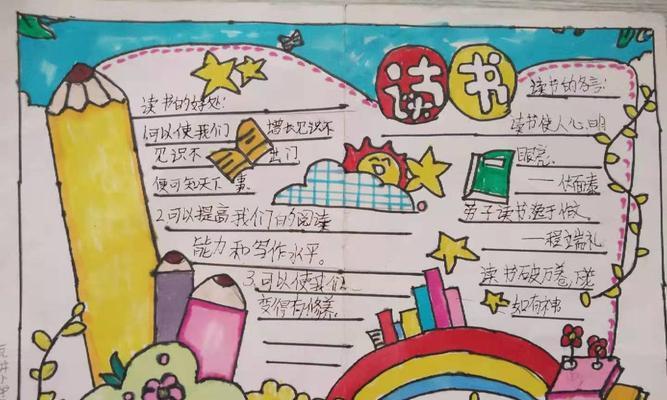 读书
读书的好处:
何以使我们 增长见识不
见识不 出门
便可知天下事.
2.可以提高我们的阅读
能力和写作水平。
3.可以使我们
变得有修养。
读书的名言:
读书使人心明
眼亮.
——伏尔泰
劳于读书逸于作文.
——程端礼
读书破万卷,
如有神